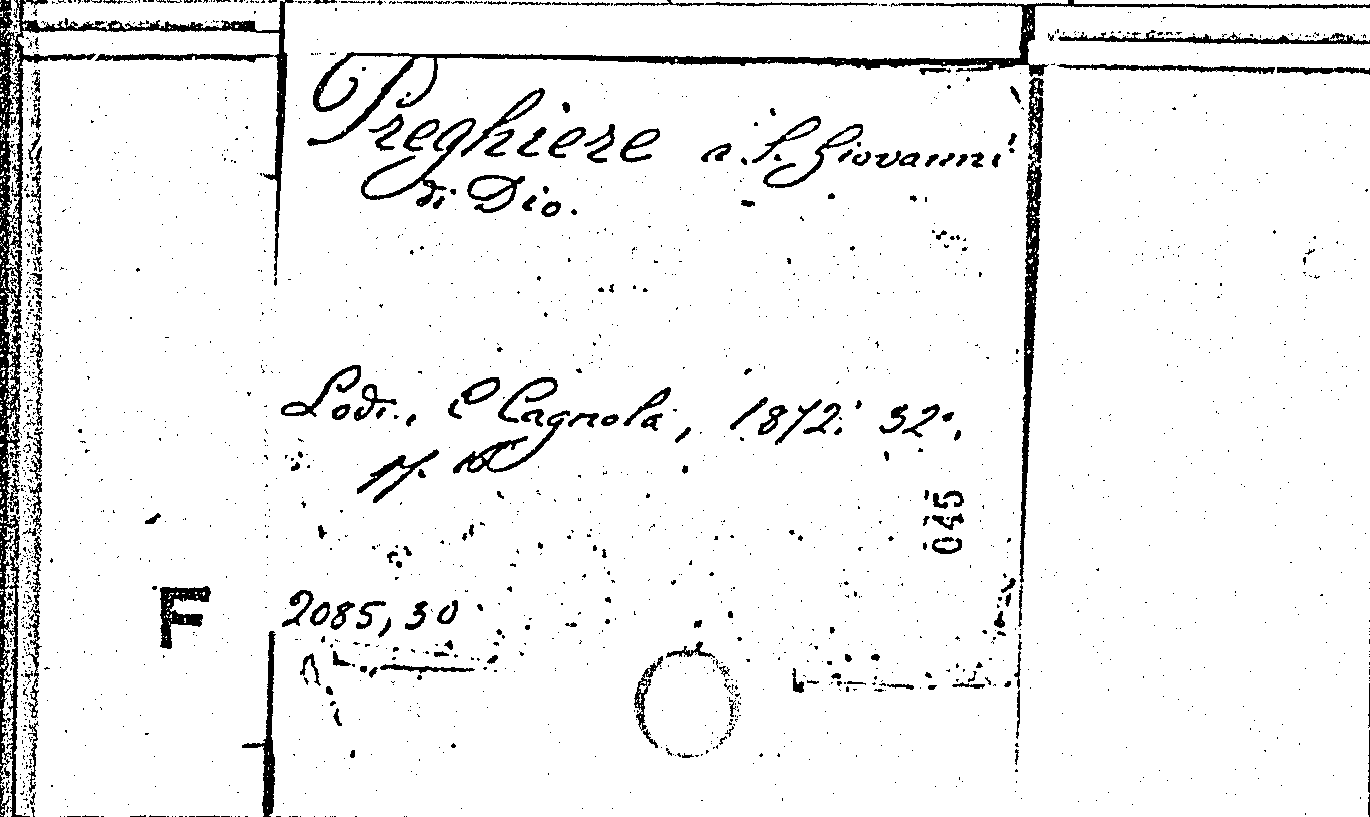 Preghiere a S. Giovanni
di Dio.
Lodi, C Cagnola, 1872. 32°,
pp.
045
F 2085, 30